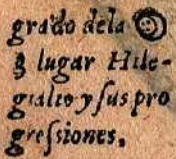 grado dela
ȝ lugar Hile-
gialto y sus pro
gressiones,